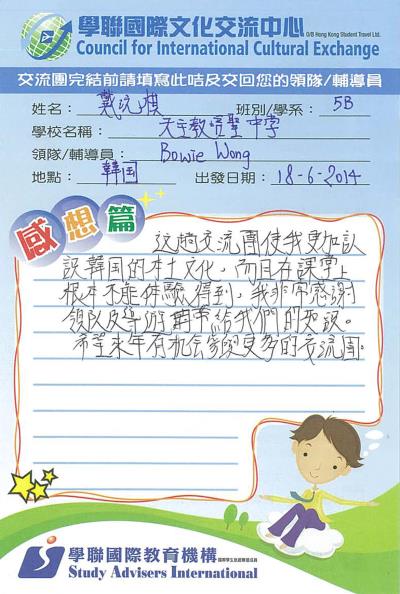 學聯國際文化交流中心
O/B Hong Kong Student Travel Ltd.
Council for International Cultural Exchange
交流團完結前請填寫此咭及交回您的領隊/輔導員
姓名： 戴 棋 班別/學系： 5B
學校名稱： 天主教 聖中学
領隊/輔導員： Bowie Wong
地點： 韓国 出發日期： 18-6-2014
感想篇
这趟交流團使我更加认
識韓国的本土文化，而且在課堂上
根本不能体驗得到，我非常感謝
領队及导游 帶給我們的知識。
希望來年有机会參與更多的交流团。
學聯國際教育機構
Study Advisers International